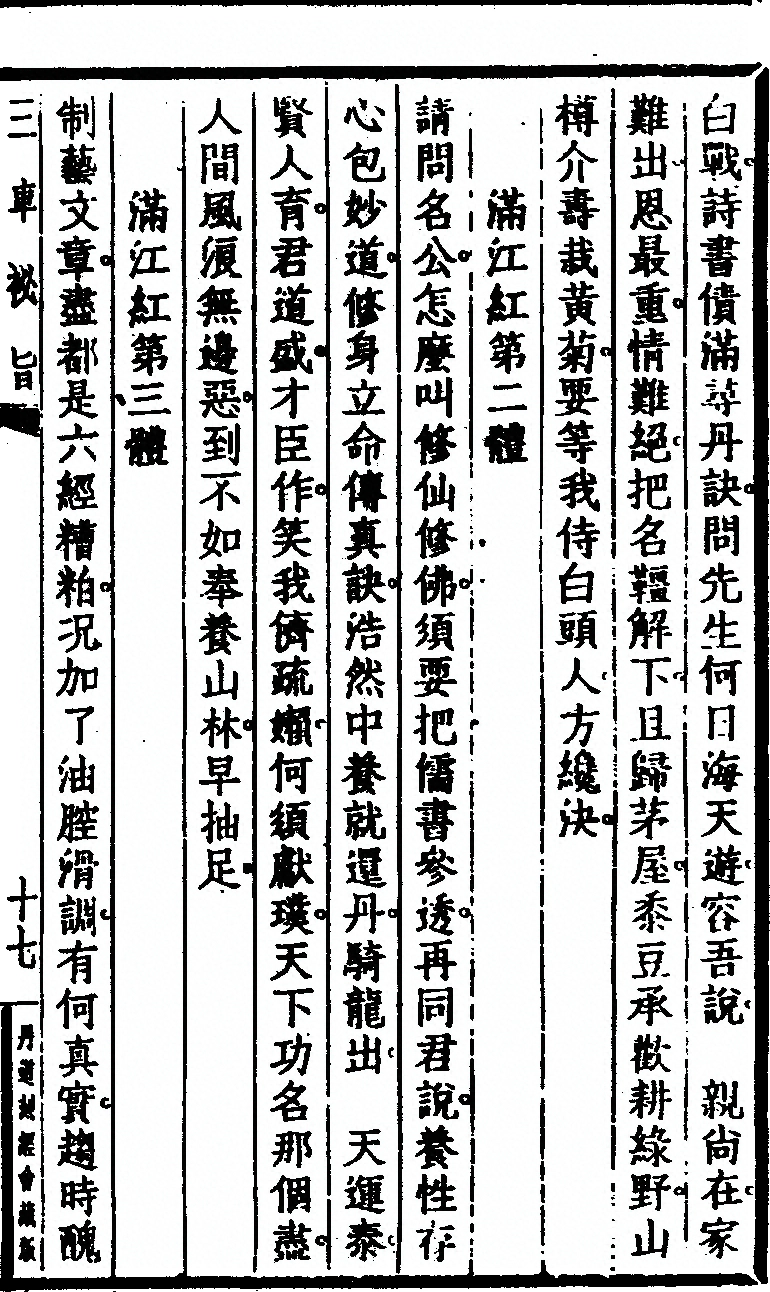 白戰詩書債滿尋丹訣問先生何日海天遊容吾說　親尚在家
難出恩最重情難絕把名韁解下且歸茅屋黍豆承歡耕綠野山
樽介壽栽黃菊要等我侍白頭人方纔決
滿江紅第二體
請問名公怎麼叫修仙修佛須要把儒書參透再同君說養性存
心包妙道修身立命傳真訣浩然中養就還丹騎龍出　天運泰
賢人育君道盛才臣作笑我儕疏嬾何須獻璞天下功名那個盡
人間風浪無邊惡到不如奉養山林早抽足
滿江紅第三體
制藝文章盡都是六經糟粕况加了油腔滑調有何真實趨時醜
三車祕旨
十七
丹道刻經會藏版